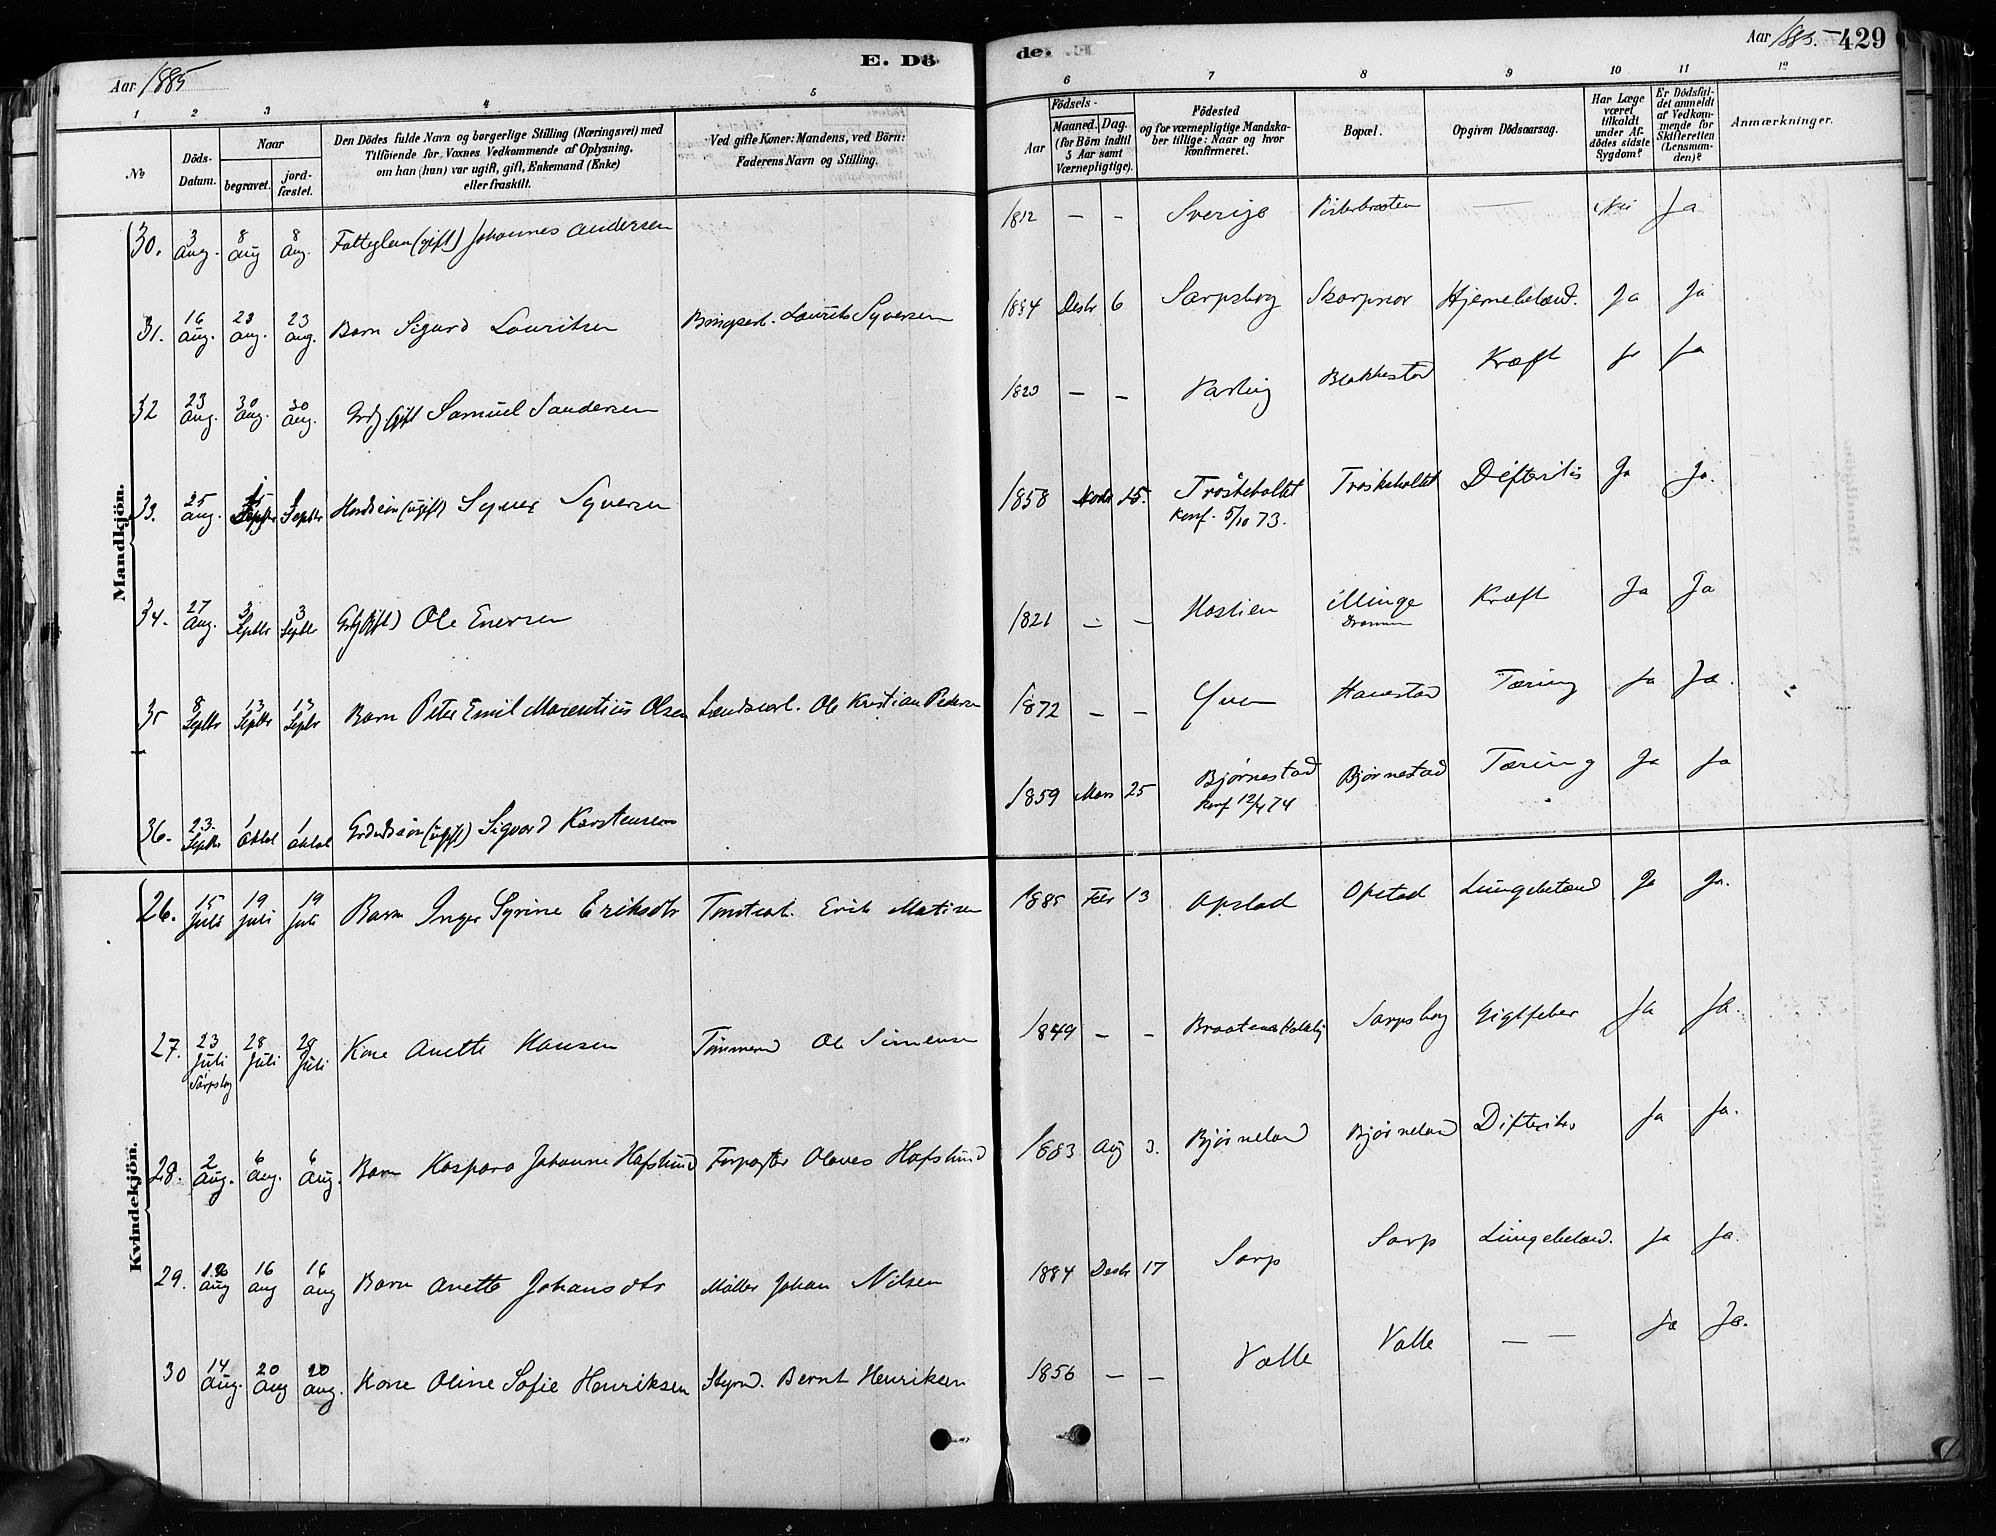 Aar 1885 E. Dö
de. Aar 1885. 429
1 2 3 4 5
6 7 8 9 10 11 12
№
Döds-Datum.
Naar
begravet.
jordfæstet.
Den Dödes fulde Navn og borgerlige Stilling (Næringsvei) med
Tilföiende for Voxnes Vedkommende af Oplysning,
om han (hun) var ugift, gift, Enkemand (Enke)
eller fraskilt.
Ved gifte Koner: Mandens, ved Börn:
Faderens Navn og Stilling.
Födsels-
Aar
Maaned. Dag.
(for Börn indtil
5 Aar samt
Værnepligtige).
Födested
og for værnepligtige Mandska-
ber tillige: Naar og hvor
konfirmeret.
Bopæl.
Opgiven Dödsaarsag.
Har Læge
været
tilkaldt
under Af-
dödes sidste
Sygdom?
Er Dödsfal-
det anmeldt
af Vedkom-
mende for
Skifteretten
(Lensman-
den)?
Anmærkninger.
Mandkjön.
30. 3 Aug. 8 Aug 8 Aug. (gift) Johannes Andersen 1812 — - Sverige — Nei Ja
31. 16 Aug. 23 Aug. 23 Aug. Barn Sigurd Lauritsen Laurits Syversen 1884 Desbr 6 Sarpsborg Skarpnor Hjernebetænd. Ja Ja
32 23 Aug. 30 Aug. 30 Aug. Grdj gift Samuel Sandersen 1820 — - Varteig Blakkestad Kræft Ja Ja
33. 25 Aug. Septbr Septbr (ugift) Syver Syversen 1858 Novbr 15. Trøskeholtet Konf. 5/10 73. Trøskeholtet Difteritis Ja Ja.
34. 27 Aug. 3 Septbr 3 Septbr Grdj (gift) Ole Enersen 1821 — - Hostien Minge Kræft Ja Ja
35 8 Septbr 13 Septbr 13 Septbr Barn Peter Emil Marentius Olsen Ole Kristian Pedersen 1872 — - Yven Hanestad Tæring Ja Ja.
36. 23. Septbr 1 Oktob 1 Oktob (ugift) Sigvard Karstensen 1859 Mars 25 Bjørnestad Konf 12/4 74 Bjørnestad Tæring Ja Ja
Kvindekjön.
26. 15 Juli 19 Juli 19 Juli Barn Inger Syrine Eriksdtr Tomtearb. Erik Matisen 1885 Febr 13 Opstad Opstad Lungebetænd Ja Ja.
27. 23 Juli Sarpsborg 28 Juli 28 Juli Kone Anette Hansen Tømmerm Ole Simensen 1849 — - Sarpsborg Gigtfeber Ja Ja.
28. 2 Aug. 6 Aug. 6 Aug. Barn Kaspara Johanne Hafslund Forpagter Olaves Hafslund 1883 Aug 3. Bjørneland Bjørneland Difteritis Ja Ja.
29. 12 Aug 16 Aug 16 Aug Barn Anette Johansdtr Møller Johan Nilsen 1884 Desbr 17 Sarp Sarp Lungebetænd. Ja Ja.
30 14 Aug. 20 Aug 20 Aug. Kone Oline Sofie Henriksen Styrm. Bernt Henriksen 1856 — - Valle Valle — — Ja Ja.